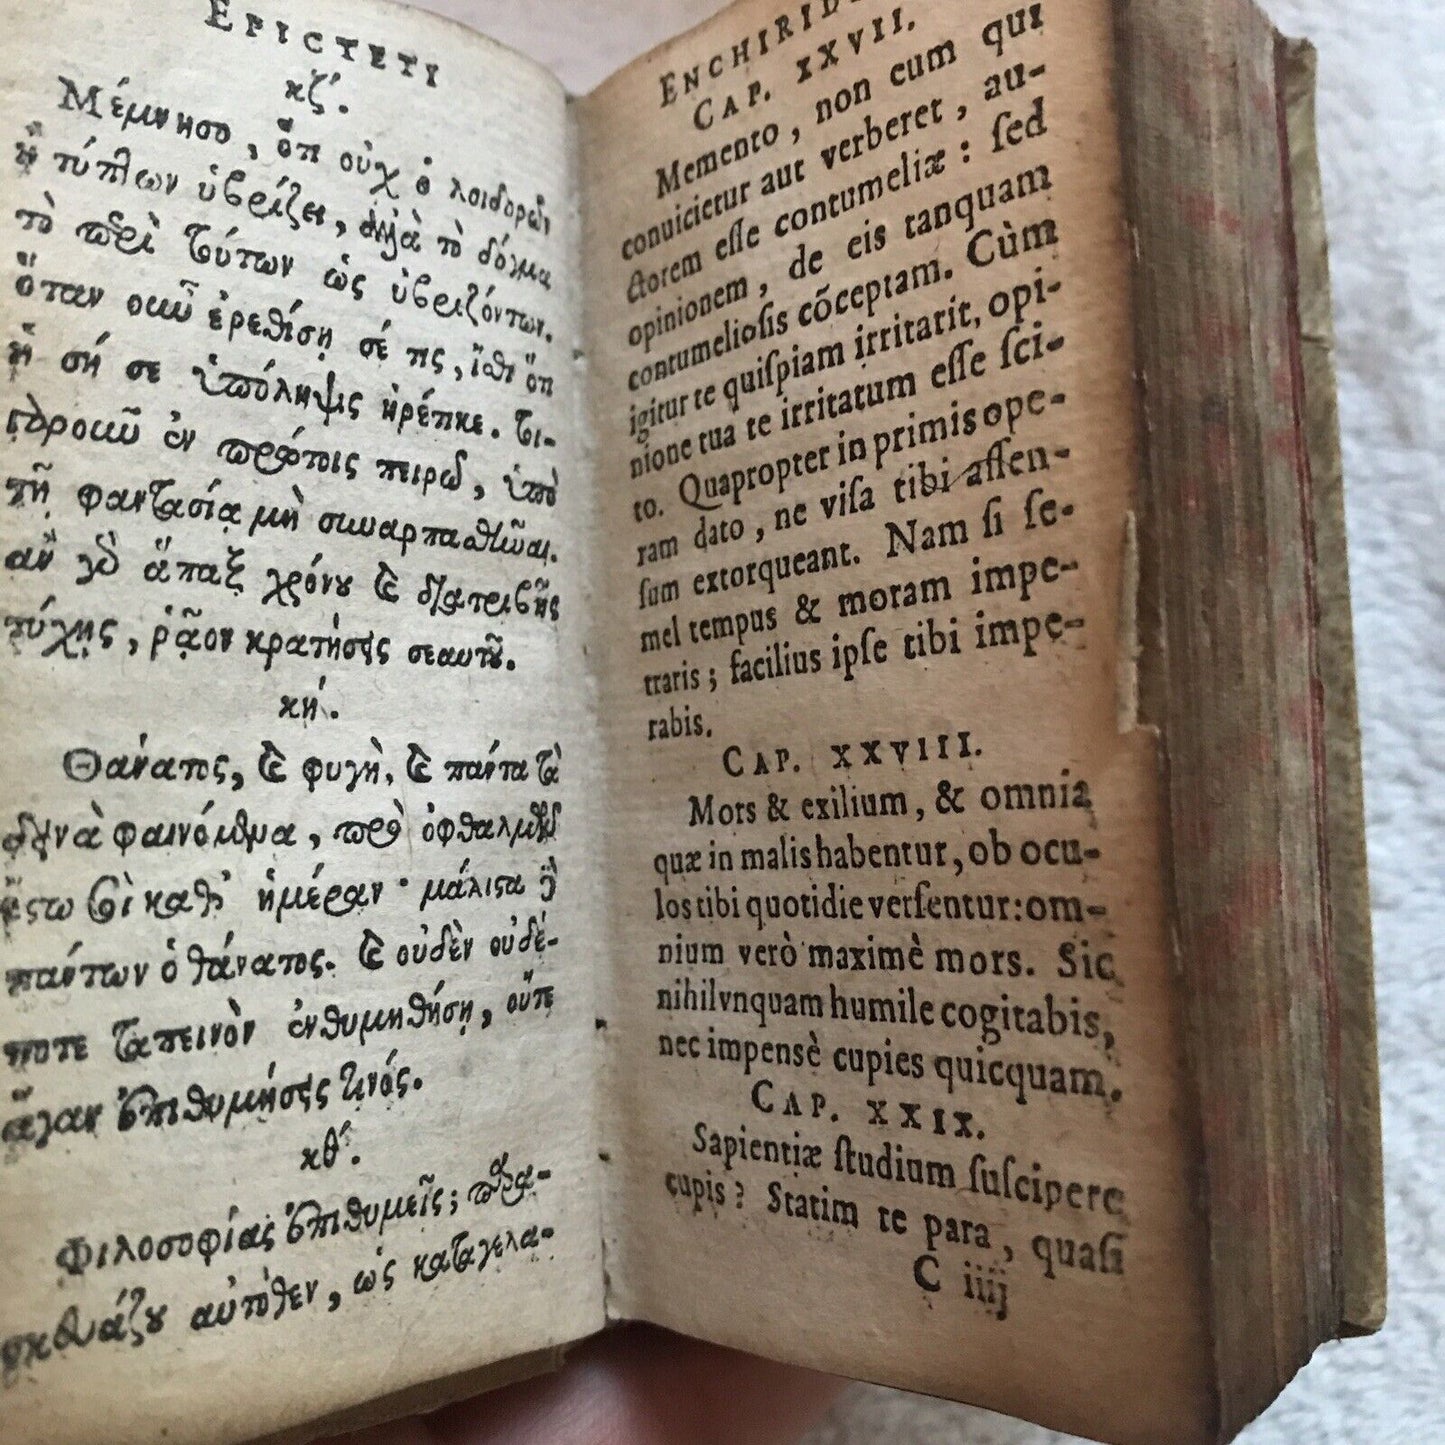 EPICTETI
κζʹ.
Μέμνησο, ὅτι οὐχ ὁ λοιδορῶν
ἢ τύπτων ὑβρίζει, ἀλλὰ τὸ δόγμα
τὸ περὶ τούτων ὡς ὑβριζόντων.
ὅταν οὖν ἐρεθίσῃ σέ τις, ἴσθι ὅτι
ἡ σή σε ὑπόληψις ἠρέθικε. τοι-
γαροῦν ἐν πρώτοις πειρῶ, ὑπὸ
τῆς φαντασίας μὴ συναρπασθῆναι.
ἂν γὸ ἅπαξ χρόνου καὶ διατριβῆς
τύχῃς, ῥᾷον κρατήσεις σεαυτοῦ.
κηʹ.
Θάνατος, καὶ φυγὴ, καὶ πάντα τὰ
δεινὰ φαινόμενα, πρὸ ὀφθαλμῶν
ἔστω σοὶ καθ' ἡμέραν· μάλιστα δὲ
πάντων ὁ θάνατος. καὶ οὐδὲν οὐδέ-
ποτε ταπεινὸν ἐνθυμηθήσῃ, οὔτε
ἄγαν ἐπιθυμήσεις τινός.
κθʹ.
Φιλοσοφίας ἐπιθυμεῖς; παρα-
σκευάζου αὐτόθεν, ὡς καταγελα-
ENCHIRIDI
CAP. XXVII.
Memento, non eum qui
conuicietur aut verberet, au-
ctorem esse contumeliæ: sed
opinionem, de eis tanquam
contumeliosis cõceptam. Cùm
igitur te quispiam irritarit, opi-
nione tua te irritatum esse sci-
to. Quapropter in primis ope-
ram dato, ne visa tibi assen-
sum extorqueant. Nam si se-
mel tempus & moram impe-
traris; facilius ipse tibi impe-
rabis.
CAP. XXVIII.
Mors & exilium, & omnia
quæ in malis habentur, ob ocu-
los tibi quotidie versentur: om-
nium verò maximè mors. Sic
nihil vnquam humile cogitabis,
nec impensè cupies quicquam.
CAP. XXIX.
Sapientiæ studium suscipere
cupis? Statim te para, quasi
C iiij